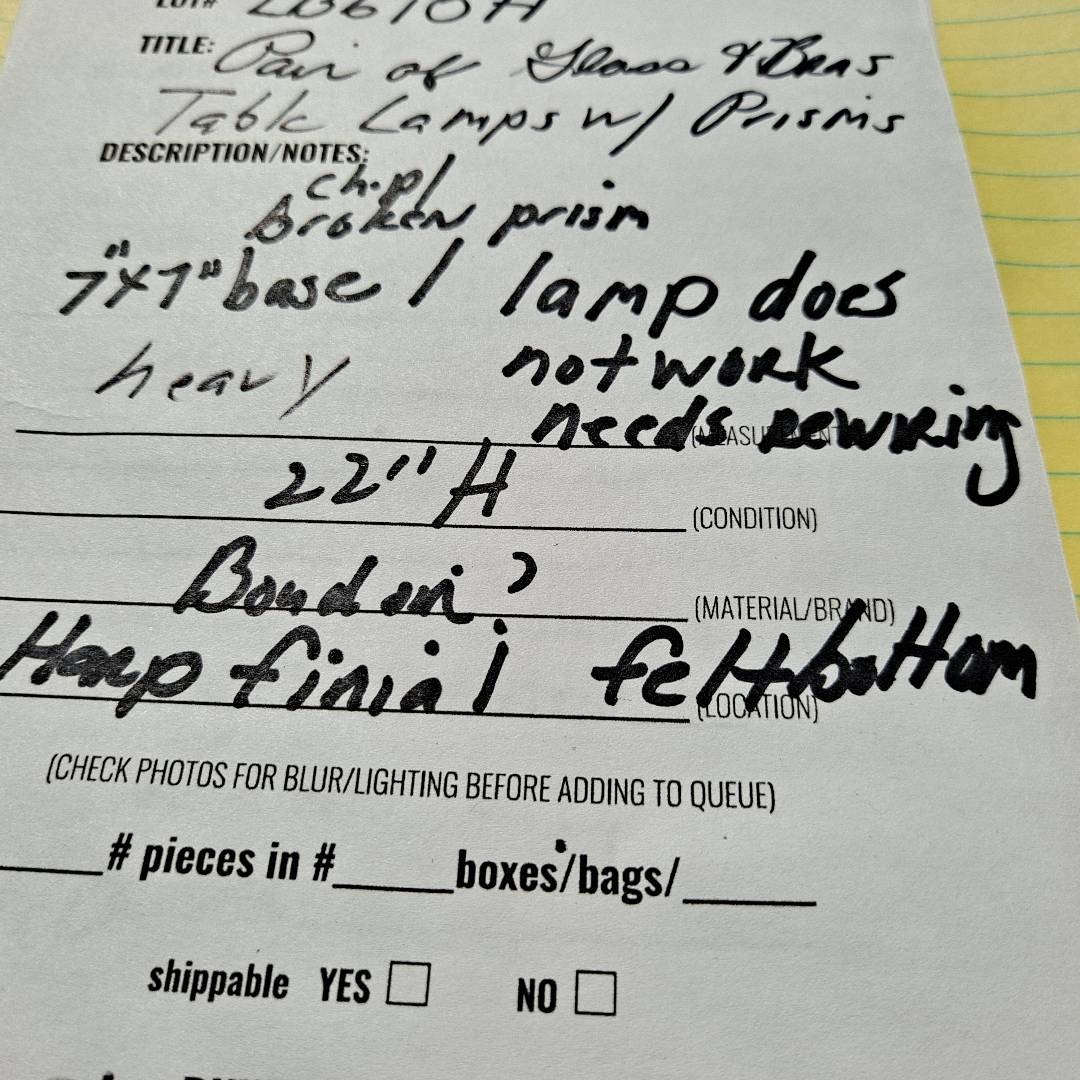 TITLE: Pair of Glass & Bras
Table Lamps w/ Prisms
DESCRIPTION/NOTES:
chip/
broken prism
7"x7" base / lamp does
heavy not work
needs rewiring
22" H (CONDITION)
(MATERIAL/BRAND)
Harp finial felt bottom
(LOCATION)
(CHECK PHOTOS FOR BLUR/LIGHTING BEFORE ADDING TO QUEUE)
____# pieces in #____boxes/bags/____
shippable YES ☐ NO ☐